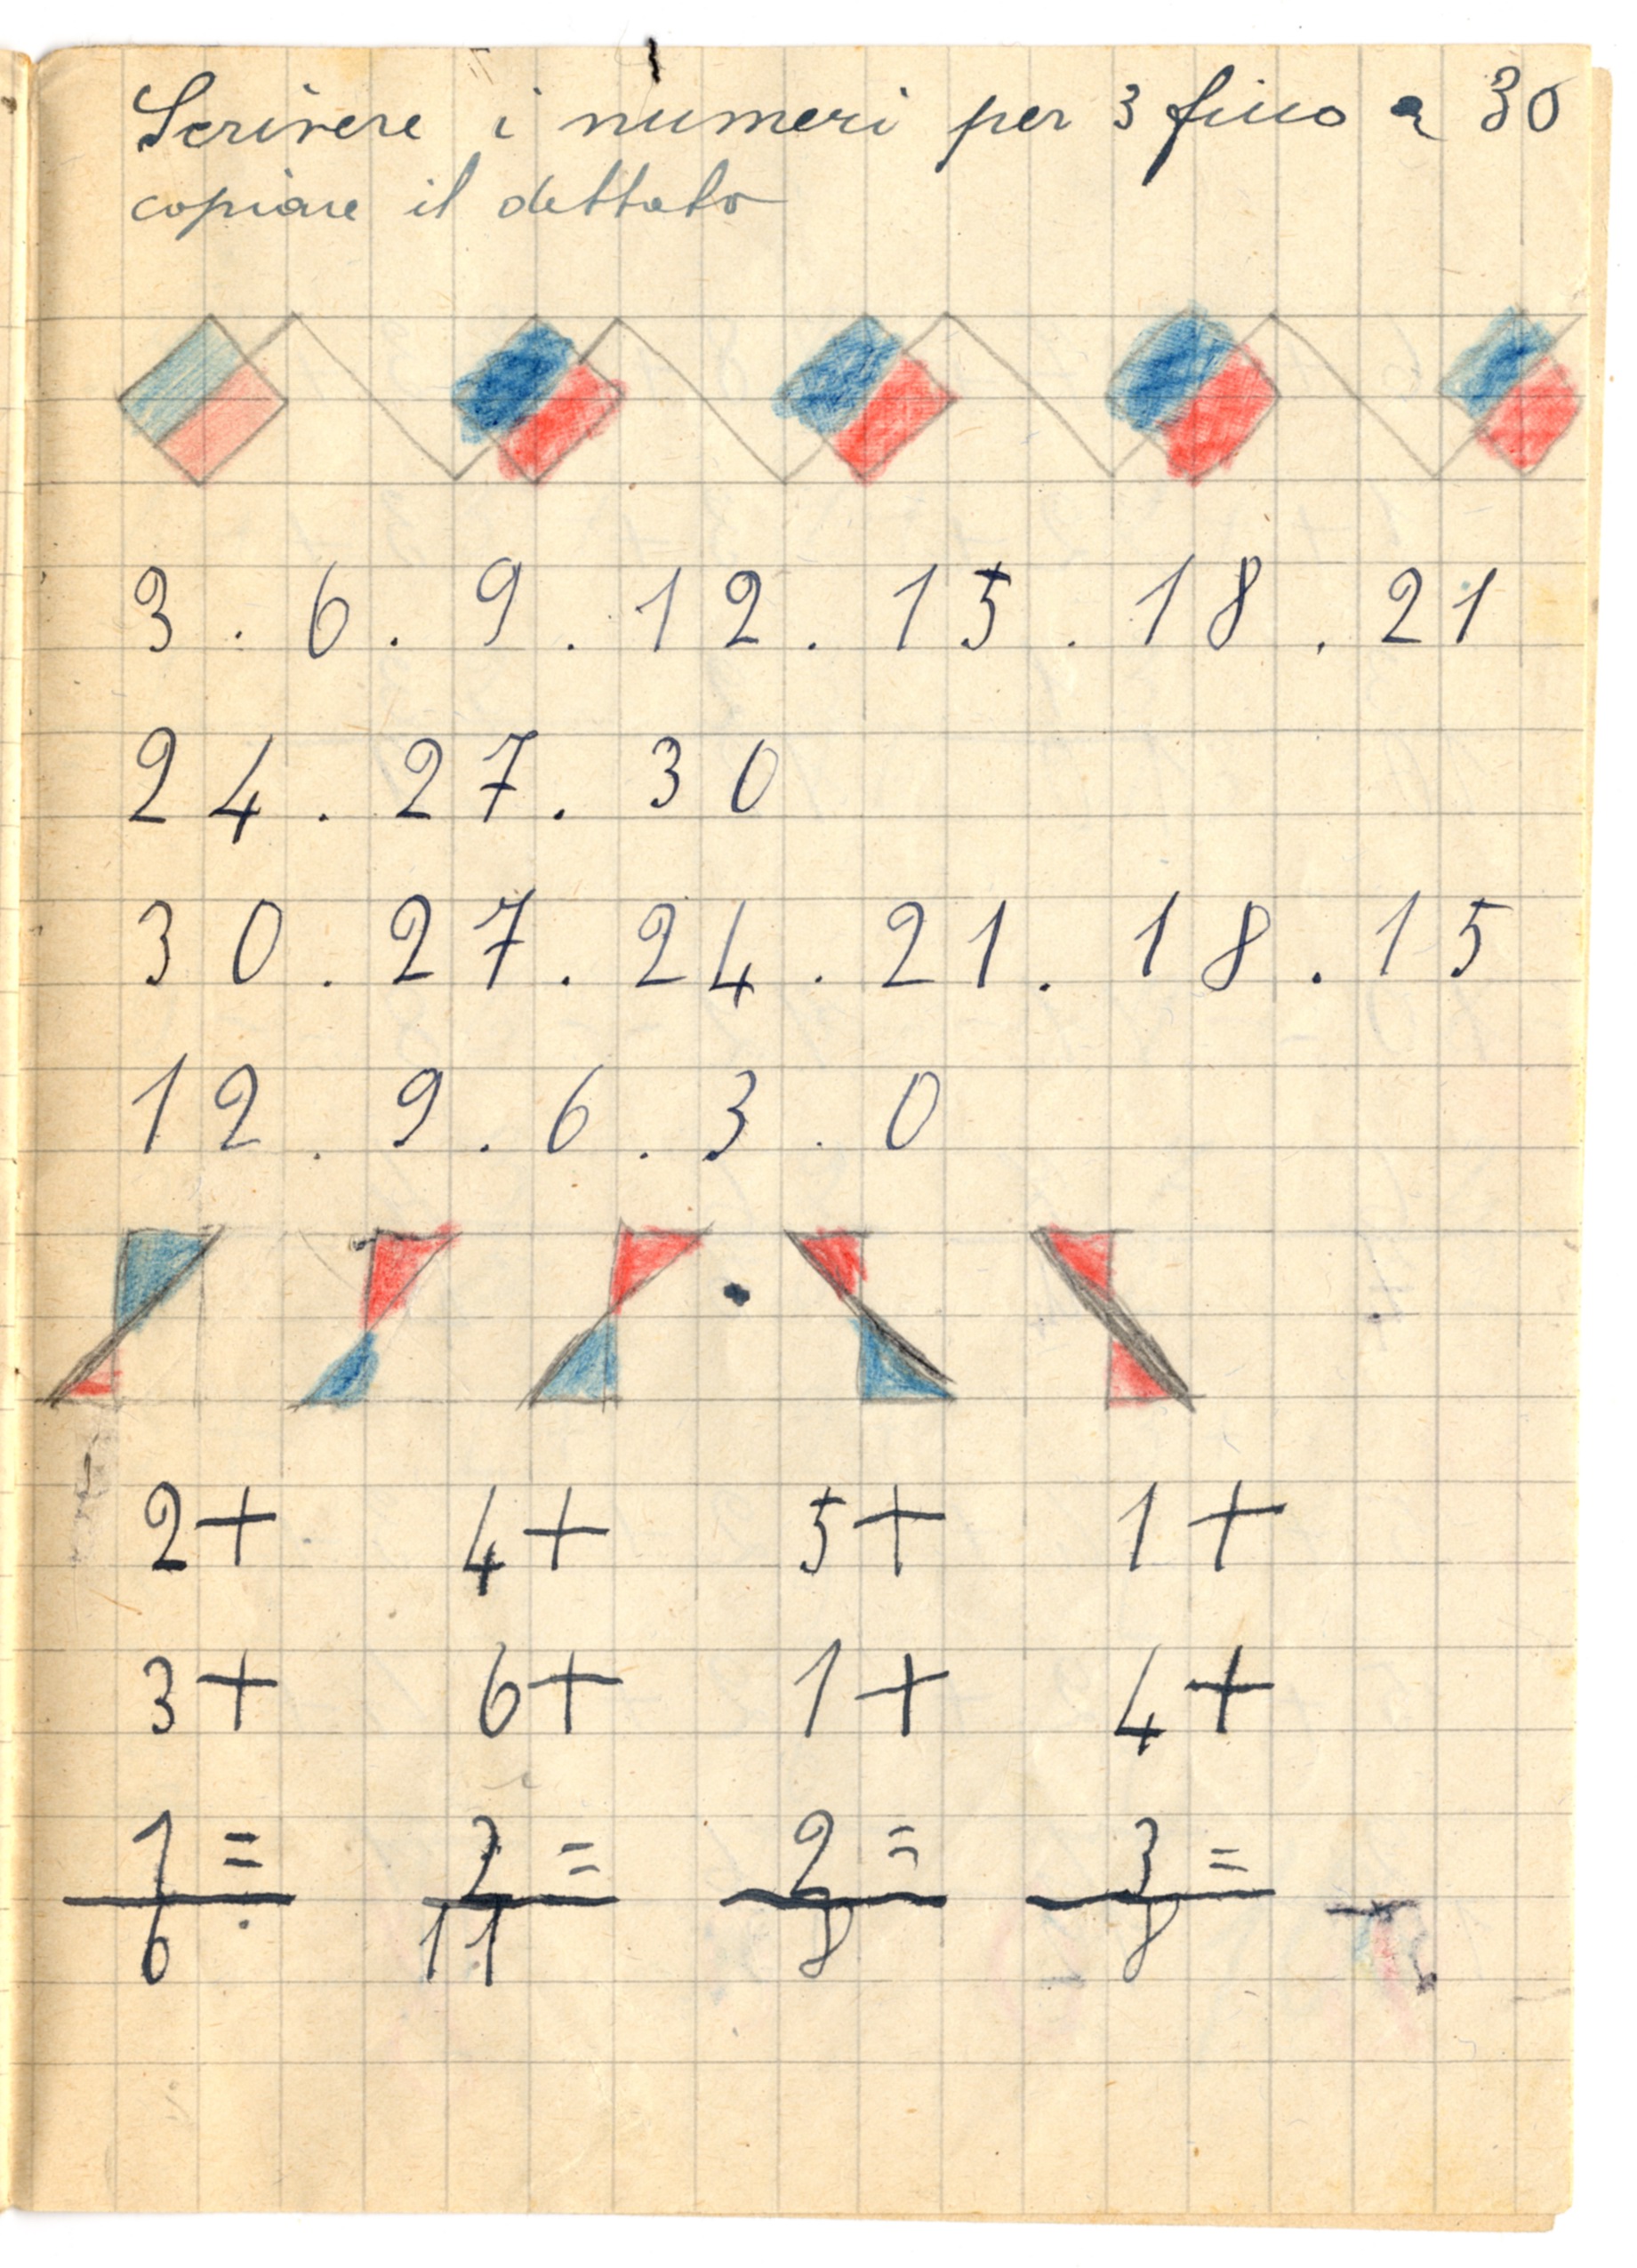 Scrivere i numeri per 3 fino a 30
copiare il dettato
3 . 6 . 9 . 12 . 15 . 18 . 21
24 . 27 . 30
30 . 27 . 24 . 21 . 18 . 15
12 . 9 . 6 . 3 . 0
2+ 4+ 5+ 1+
3+ 6+ 1+ 4+
1= = 2= 3=
6 11 8 8